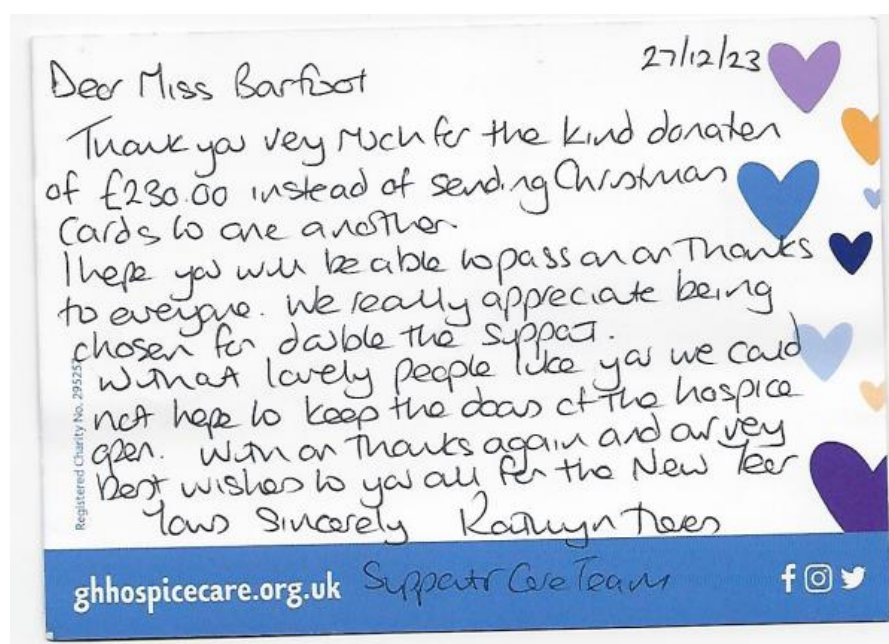 27/12/23
Dear Miss Barfoot
Thank you very much for the kind donation
of £230.00 instead of sending Christmas
Cards to one another.
I hope you will be able to pass on our Thanks
to everyone. We really appreciate being
chosen for double the support.
Without lovely people like you we could
not hope to keep the doors of the hospice
open. With our Thanks again and our very
best wishes to you all for the New Year
Yours Sincerely
Supporter Care Team
ghhospicecare.org.uk
Registered Charity No. 295257